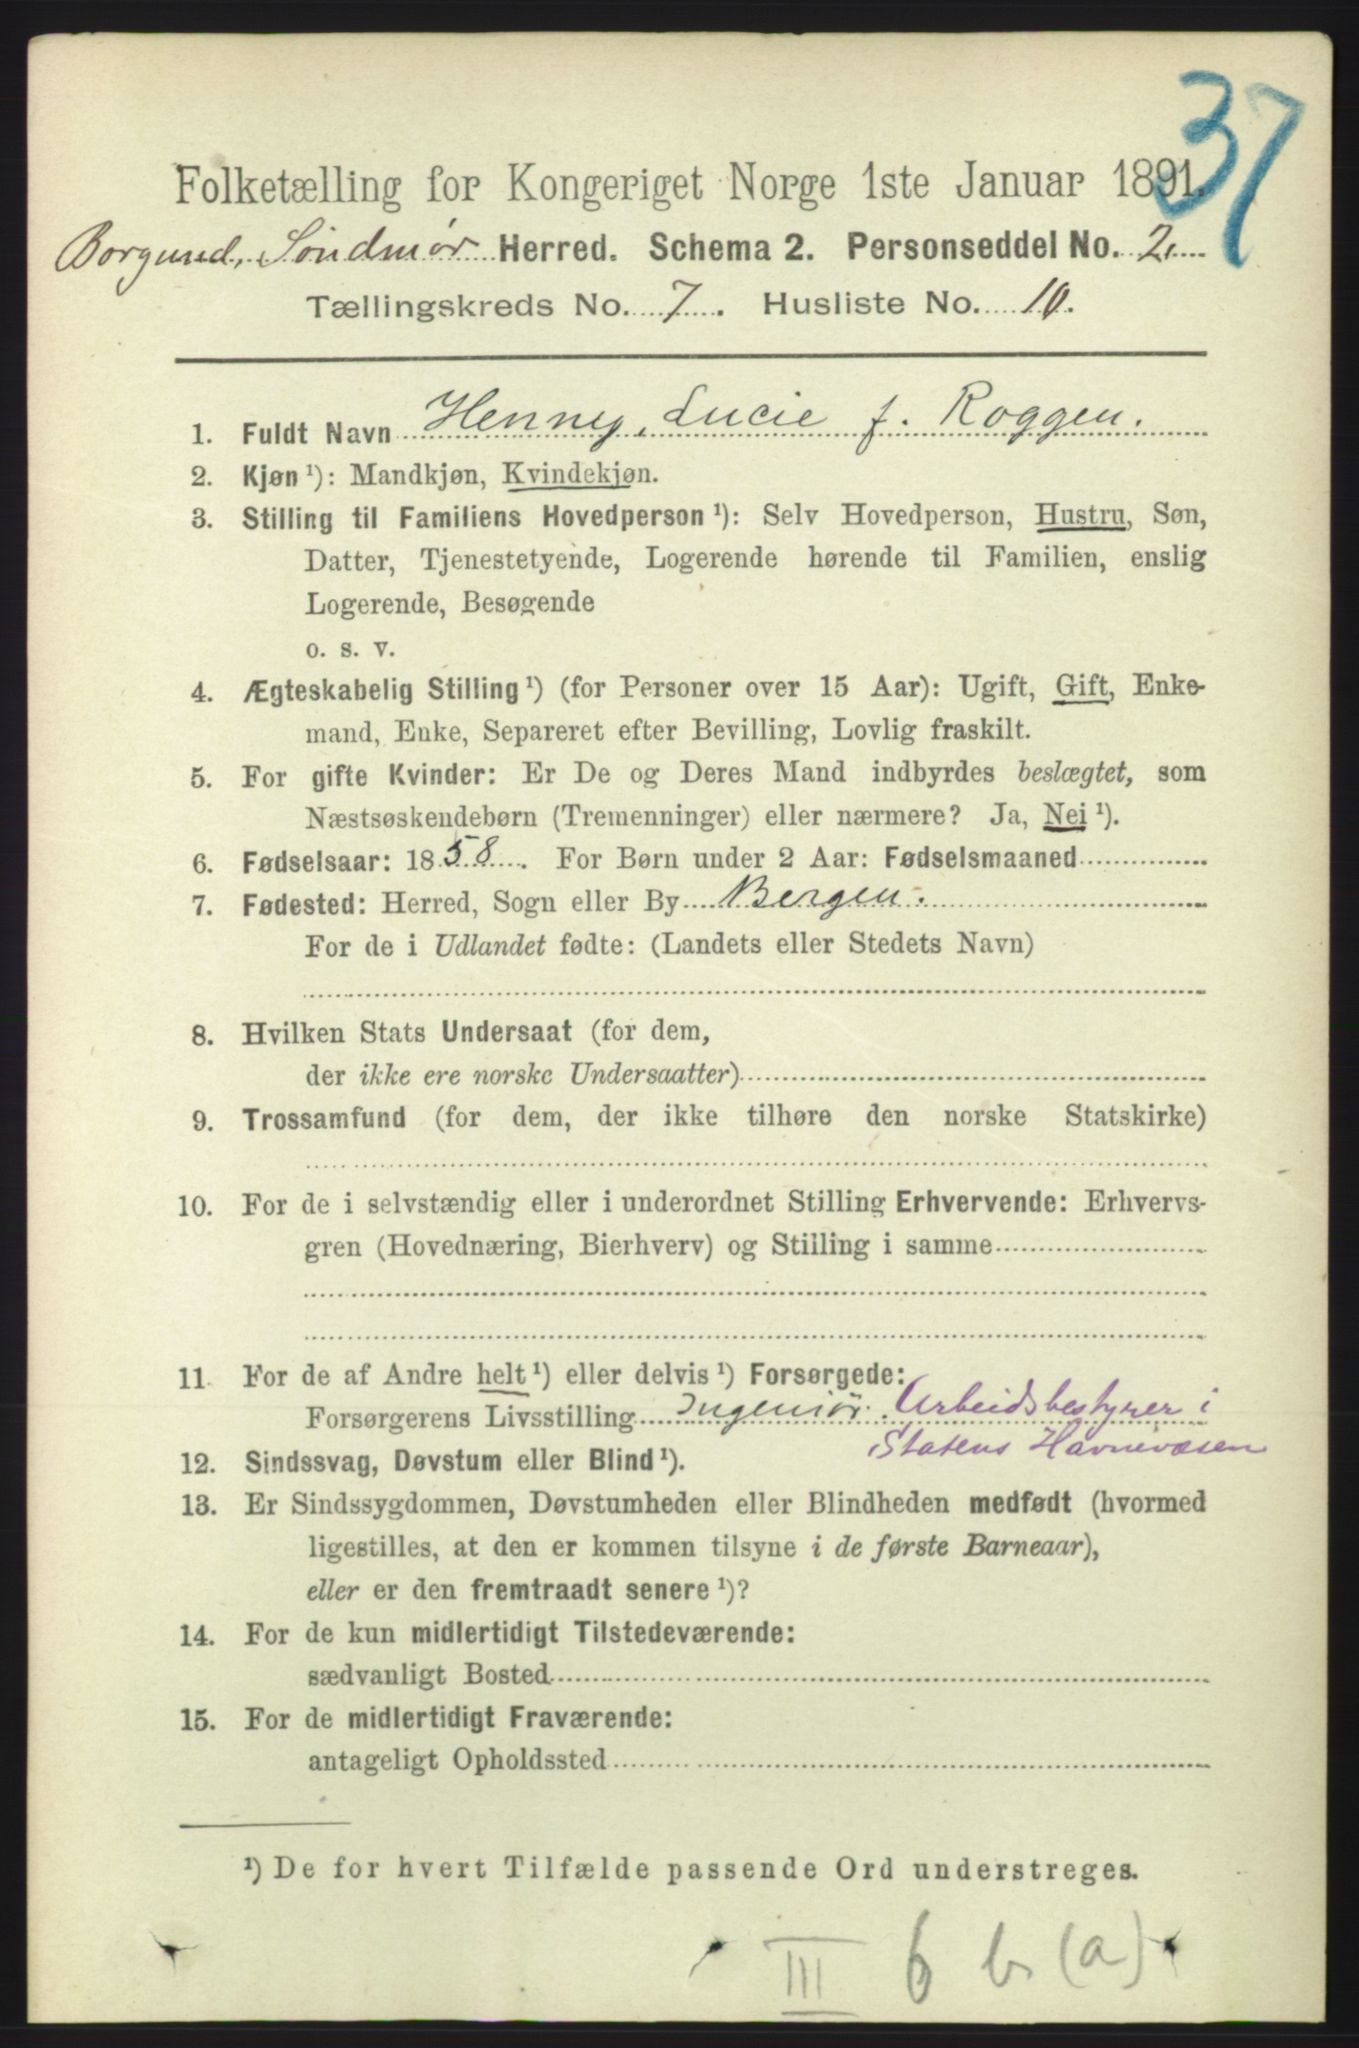 37
Folketælling for Kongeriget Norge 1ste Januar 1891.
Borgund, Söndmør Herred. Schema 2. Personseddel No. 2.
Tællingskreds No. 7. Husliste No. 10.
1. Fuldt Navn Henny, Lucie f. Roggen.
2. Kjøn ¹): Mandkjøn, Kvindekjøn.
3. Stilling til Familiens Hovedperson ¹): Selv Hovedperson, Hustru, Søn,
Datter, Tjenestetyende, Logerende hørende til Familien, enslig
Logerende, Besøgende
o. s. v.
4. Ægteskabelig Stilling ¹) (for Personer over 15 Aar): Ugift, Gift, Enke-
mand, Enke, Separeret efter Bevilling, Lovlig fraskilt.
5. For gifte Kvinder: Er De og Deres Mand indbyrdes beslægtet, som
Næstsøskendebørn (Tremenninger) eller nærmere? Ja, Nei ¹).
6. Fødselsaar: 1858. For Børn under 2 Aar: Fødselsmaaned
7. Fødested: Herred, Sogn eller By Bergen.
For de i Udlandet fødte: (Landets eller Stedets Navn)
8. Hvilken Stats Undersaat (for dem,
der ikke ere norske Undersaatter)
9. Trossamfund (for dem, der ikke tilhøre den norske Statskirke)
10. For de i selvstændig eller i underordnet Stilling Erhvervende: Erhvervs-
gren (Hovednæring, Bierhverv) og Stilling i samme
11. For de af Andre helt ¹) eller delvis ¹) Forsørgede:
Forsørgerens Livsstilling Ingeniör. Arbeidsbestyrer i
Statens Havnevæsen
12. Sindssvag, Døvstum eller Blind ¹).
13. Er Sindssygdommen, Døvstumheden eller Blindheden medfødt (hvormed
ligestilles, at den er kommen tilsyne i de første Barneaar),
eller er den fremtraadt senere ¹)?
14. For de kun midlertidigt Tilstedeværende:
sædvanligt Bosted
15. For de midlertidigt Fraværende:
antageligt Opholdssted
¹) De for hvert Tilfælde passende Ord understreges.
III 6 b (a)